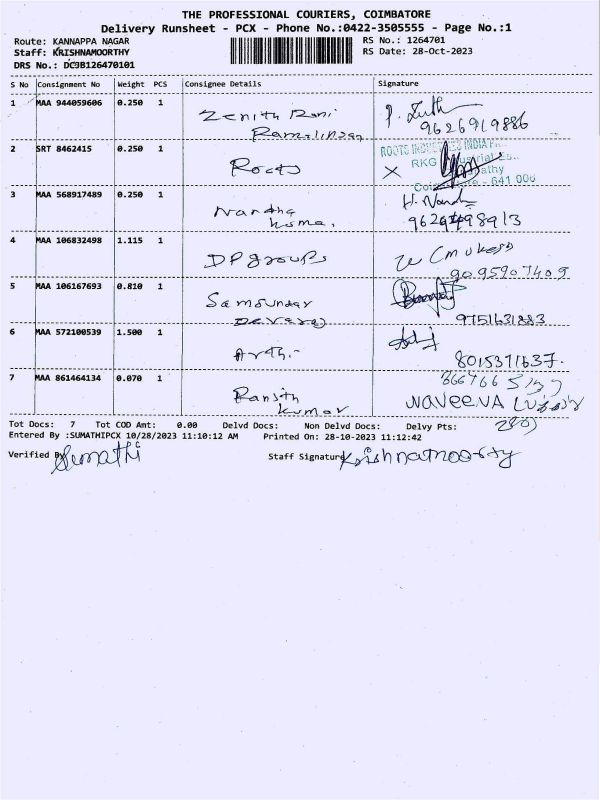 THE PROFESSIONAL COURIERS, COIMBATORE
Delivery Runsheet - PCX - Phone No.:0422-3505555 - Page No.:1
Route: KANNAPPA NAGAR
RS No.: 1264701
Staff: KRISHNAMOORTHY
RS Date: 28-Oct-2023
DRS No.: DC9B126470101
S No Consignment No Weight PCS Consignee Details Signature
1 MAA 944059606 0.250 1 Zenith Rani
Ramalingam
9626919886
2 SRT 8462415 0.250 1 Roots
ROOTS INDUSTRIES INDIA
RKG
641 006
3 MAA 568917489 0.250 1 Nandha
kumar
H. Nand
4 MAA 106832498 1.115 1 DP groups
9095907409
5 MAA 106167693 0.810 1 Samoundar
Devaraj
9751631883
6 MAA 572100539 1.500 1 Arthi
8015371637.
7 MAA 861464134 0.070 1 Ranjith
kumar
NAVEENA
Tot Docs: 7 Tot COD Amt: 0.00 Delvd Docs: Non Delvd Docs: Delvy Pts:
Entered By :SUMATHIPCX 10/28/2023 11:10:12 AM Printed On: 28-10-2023 11:12:42
Verified By Sumathi Staff Signature Krishnamoorthy